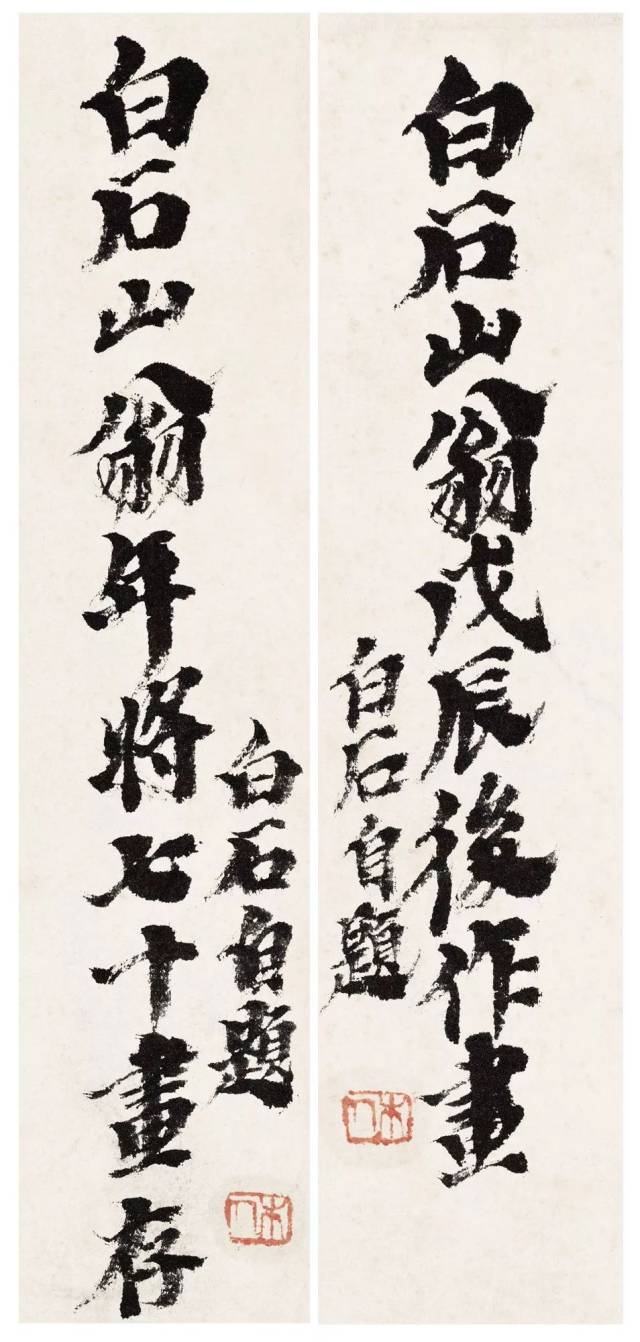 白石山翁戊辰後作畫
白石自題
木人
白石山翁年將七十畫存
白石自題
木人